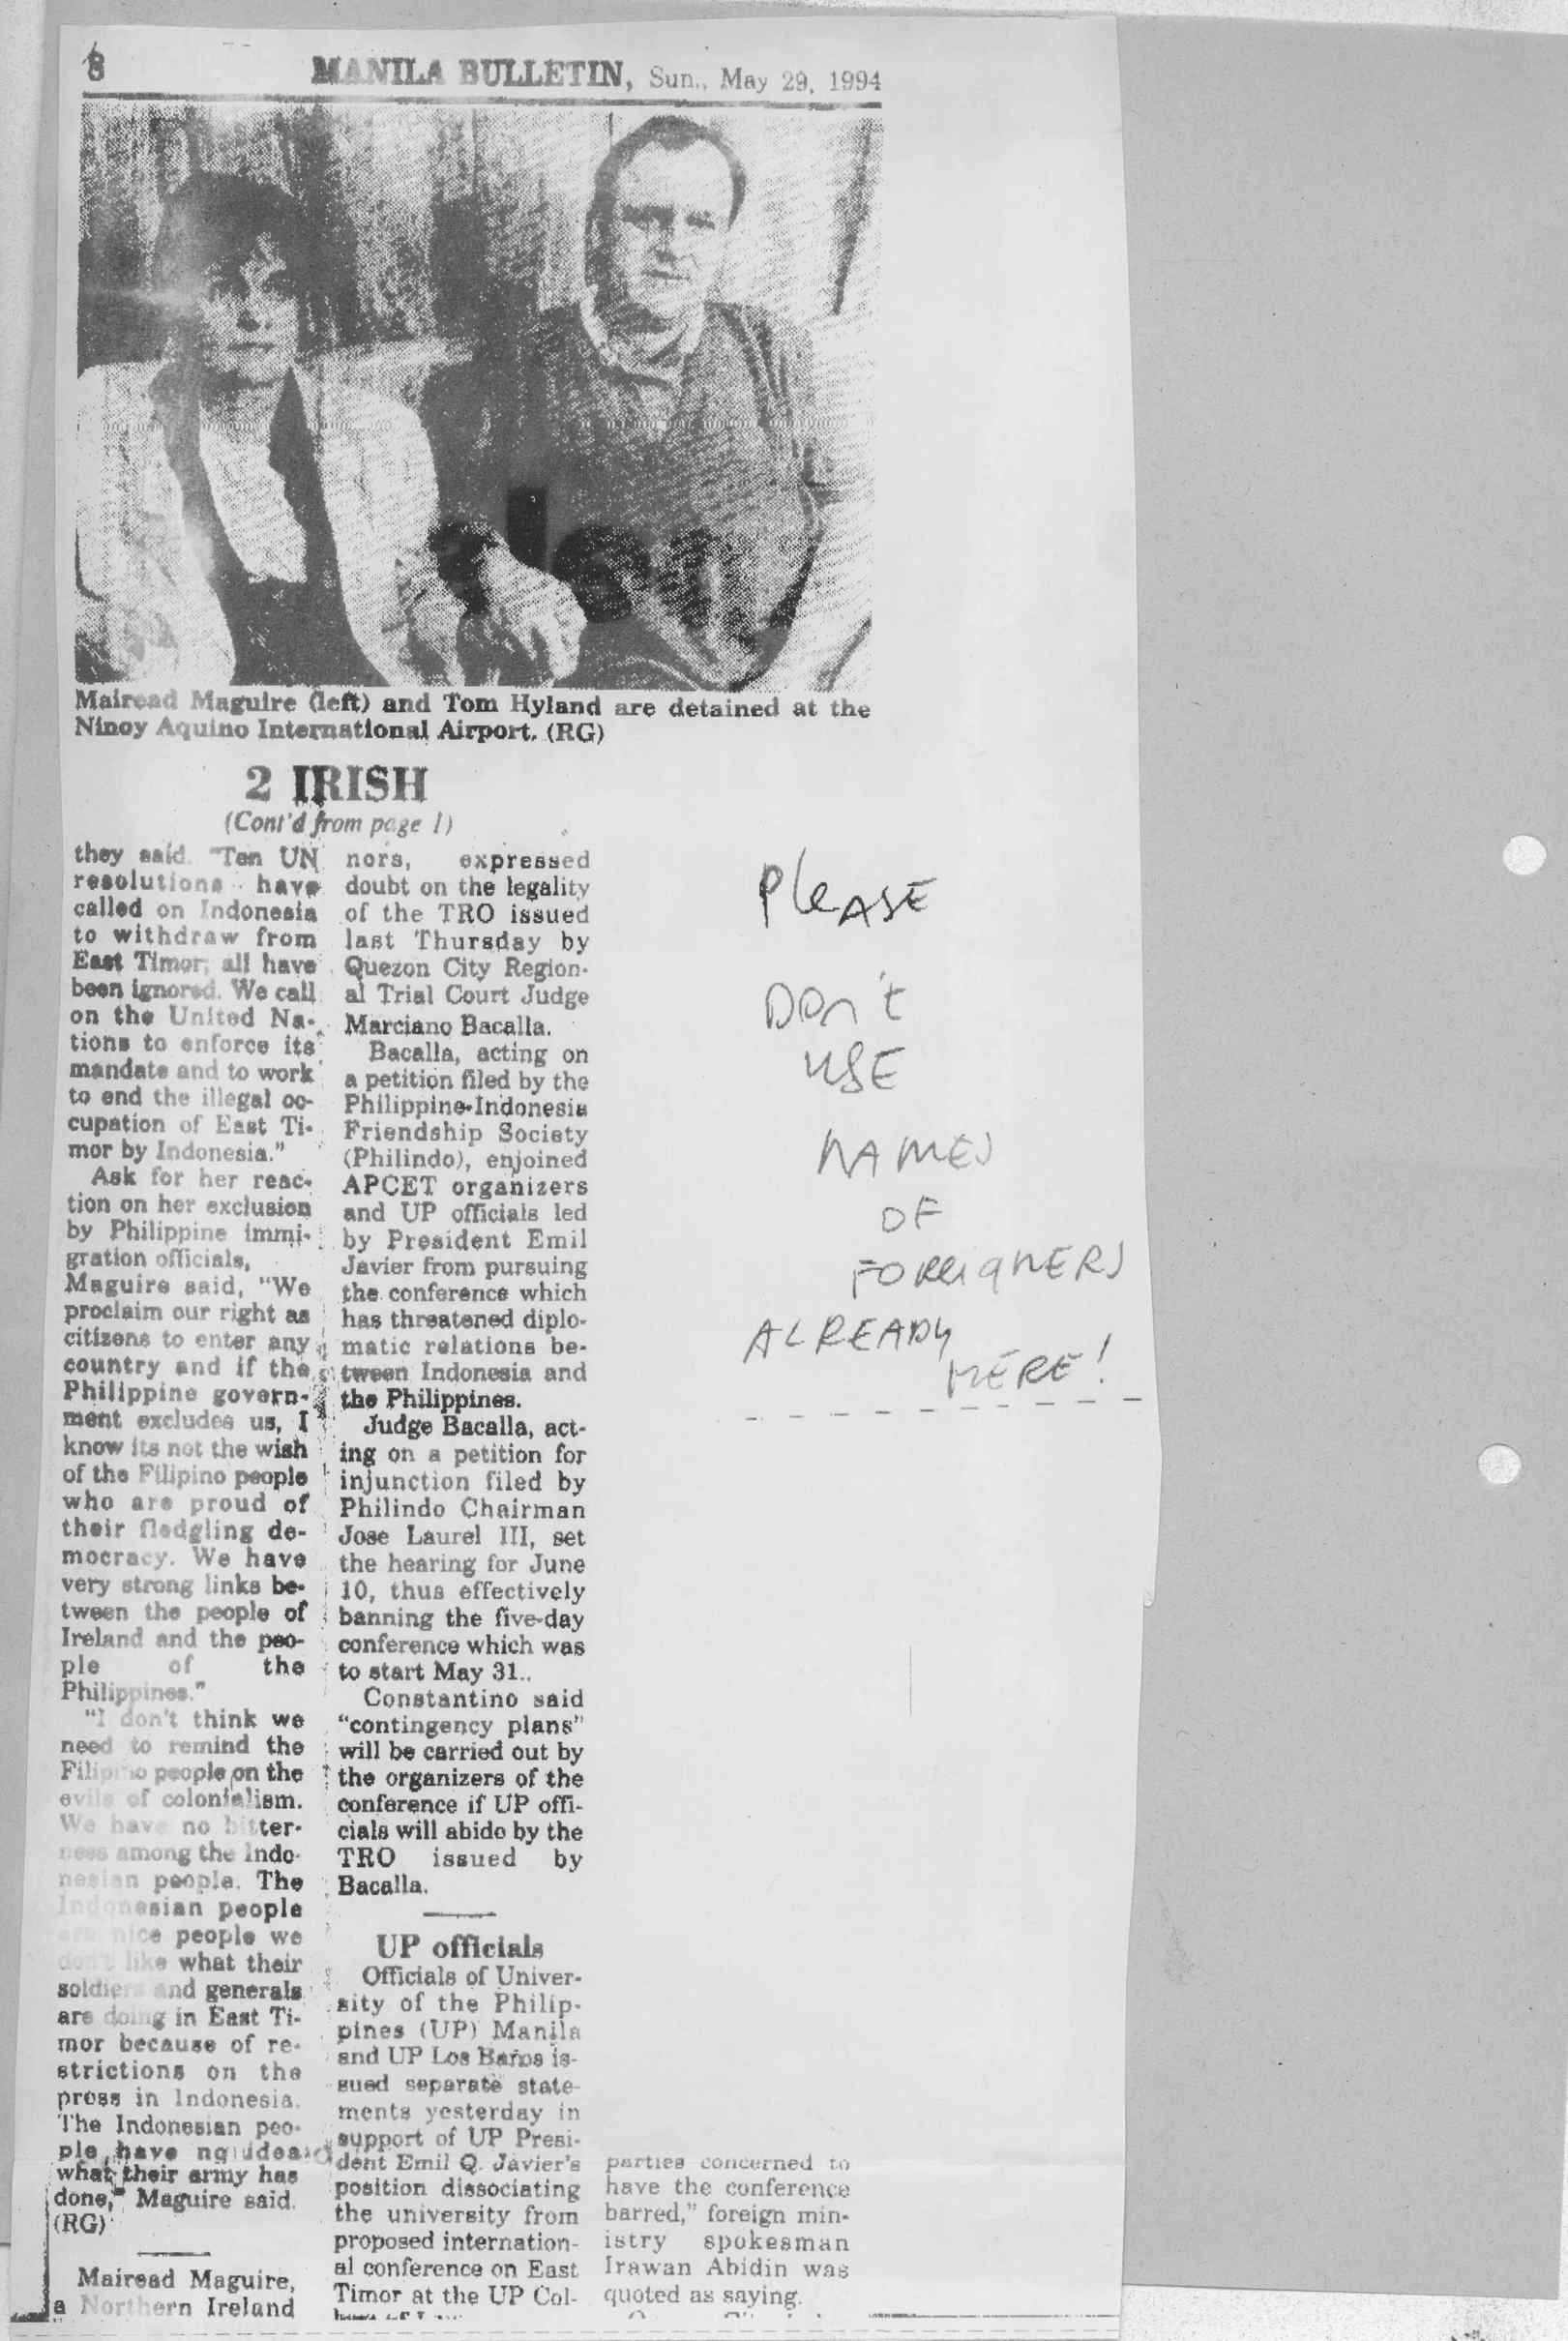 8
MANILA BULLETIN, Sun., May 29, 1994
Mairead Maguire (left) and Tom Hyland are detained at the
Ninoy Aquino International Airport. (RG)
2 IRISH
(Cont'd from page 1)
they said. "Ten UN
resolutions have
called on Indonesia
to withdraw from
East Timor; all have
been ignored. We call
on the United Na-
tions to enforce its
mandate and to work
to end the illegal oc-
cupation of East Ti-
mor by Indonesia."
Ask for her reac-
tion on her exclusion
by Philippine immi-
gration officials,
Maguire said, "We
proclaim our right as
citizens to enter any
country and if the
Philippine govern-
ment excludes us, I
know its not the wish
of the Filipino people
who are proud of
their fledgling de-
mocracy. We have
very strong links be-
tween the people of
Ireland and the peo-
ple of the
Philippines."
"I don't think we
need to remind the
Filipino people on the
evils of colonialism.
We have no bitter-
ness among the Indo-
nesian people. The
Indonesian people
are nice people we
don't like what their
soldiers and generals
are doing in East Ti-
mor because of re-
strictions on the
press in Indonesia.
The Indonesian peo-
ple have no idea
what their army has
done," Maguire said.
(RG)
Mairead Maguire,
a Northern Ireland
nors, expressed
doubt on the legality
of the TRO issued
last Thursday by
Quezon City Region-
al Trial Court Judge
Marciano Bacalla.
Bacalla, acting on
a petition filed by the
Philippine-Indonesia
Friendship Society
(Philindo), enjoined
APCET organizers
and UP officials led
by President Emil
Javier from pursuing
the conference which
has threatened diplo-
matic relations be-
tween Indonesia and
the Philippines.
Judge Bacalla, act-
ing on a petition for
injunction filed by
Philindo Chairman
Jose Laurel III, set
the hearing for June
10, thus effectively
banning the five-day
conference which was
to start May 31..
Constantino said
"contingency plans"
will be carried out by
the organizers of the
conference if UP offi-
cials will abide by the
TRO issued by
Bacalla.
UP officials
Officials of Univer-
sity of the Philip-
pines (UP) Manila
and UP Los Baños is-
sued separate state-
ments yesterday in
support of UP Presi-
dent Emil Q. Javier's
position dissociating
the university from
proposed internation-
al conference on East
Timor at the UP Col-
parties concerned to
have the conference
barred," foreign min-
istry spokesman
Irawan Abidin was
quoted as saying.
PLEASE
DON'T
USE
NAMES
OF
FOREIGNERS
ALREADY
HERE!